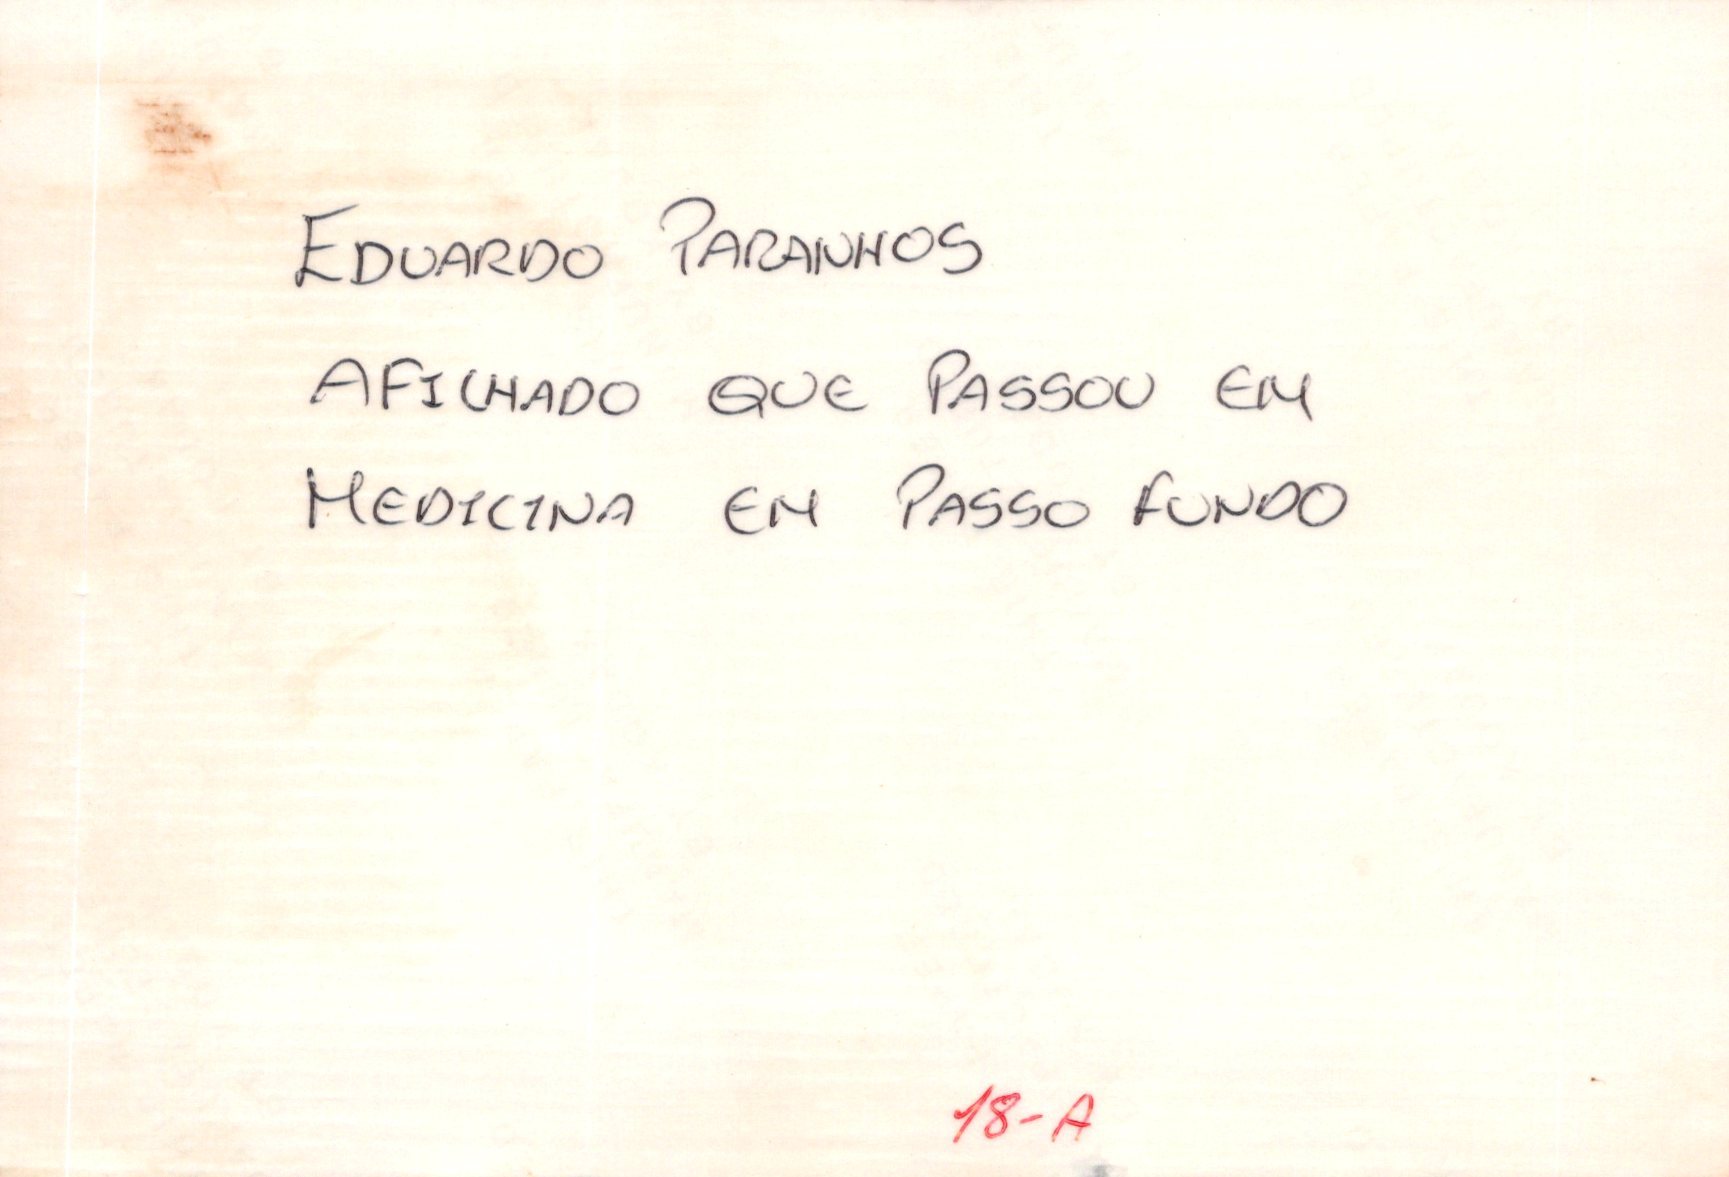 EDUARDO PARANHOS
AFILHADO QUE PASSOU EM
MEDICINA EM PASSO FUNDO
18-A